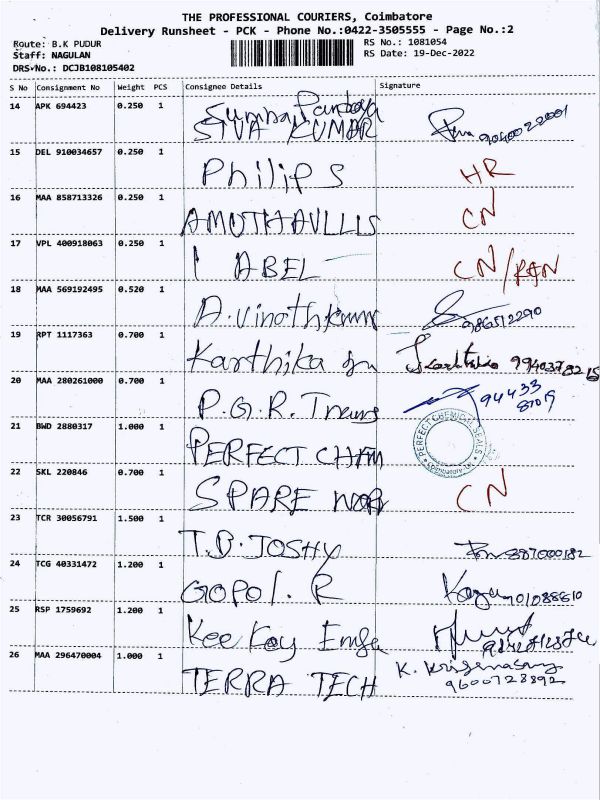 THE PROFESSIONAL COURIERS, Coimbatore
Delivery Runsheet - PCK - Phone No.:0422-3505555 - Page No.:2
Route: B.K PUDUR RS No.: 1081054
Staff: NAGULAN RS Date: 19-Dec-2022
DRS No.: DCJB108105402
S No Consignment No Weight PCS Consignee Details Signature
14 APK 694423 0.250 1
SIVA KUMAR
15 DEL 910034657 0.250 1
Philips HR
16 MAA 858713326 0.250 1
AMUTHAVLLIS CN
17 VPL 400918063 0.250 1
I ABEL CN/RAN
18 MAA 569192495 0.520 1
A. Vinothkumar
19 RPT 1117363 0.700 1
Karthika
20 MAA 280261000 0.700 1
P.G.R. 94433
21 BWD 2880317 1.000 1
PERFECT CHEM PERFECT CHEMICAL SEALS
22 SKL 220846 0.700 1
SPARE CN
23 TCR 30056791 1.500 1
T.D. JOSHY
24 TCG 40331472 1.200 1
GOPOl. R
25 RSP 1759692 1.200 1
Kee Kay
26 MAA 296470004 1.000 1
TERRA TECH K. 9600723892